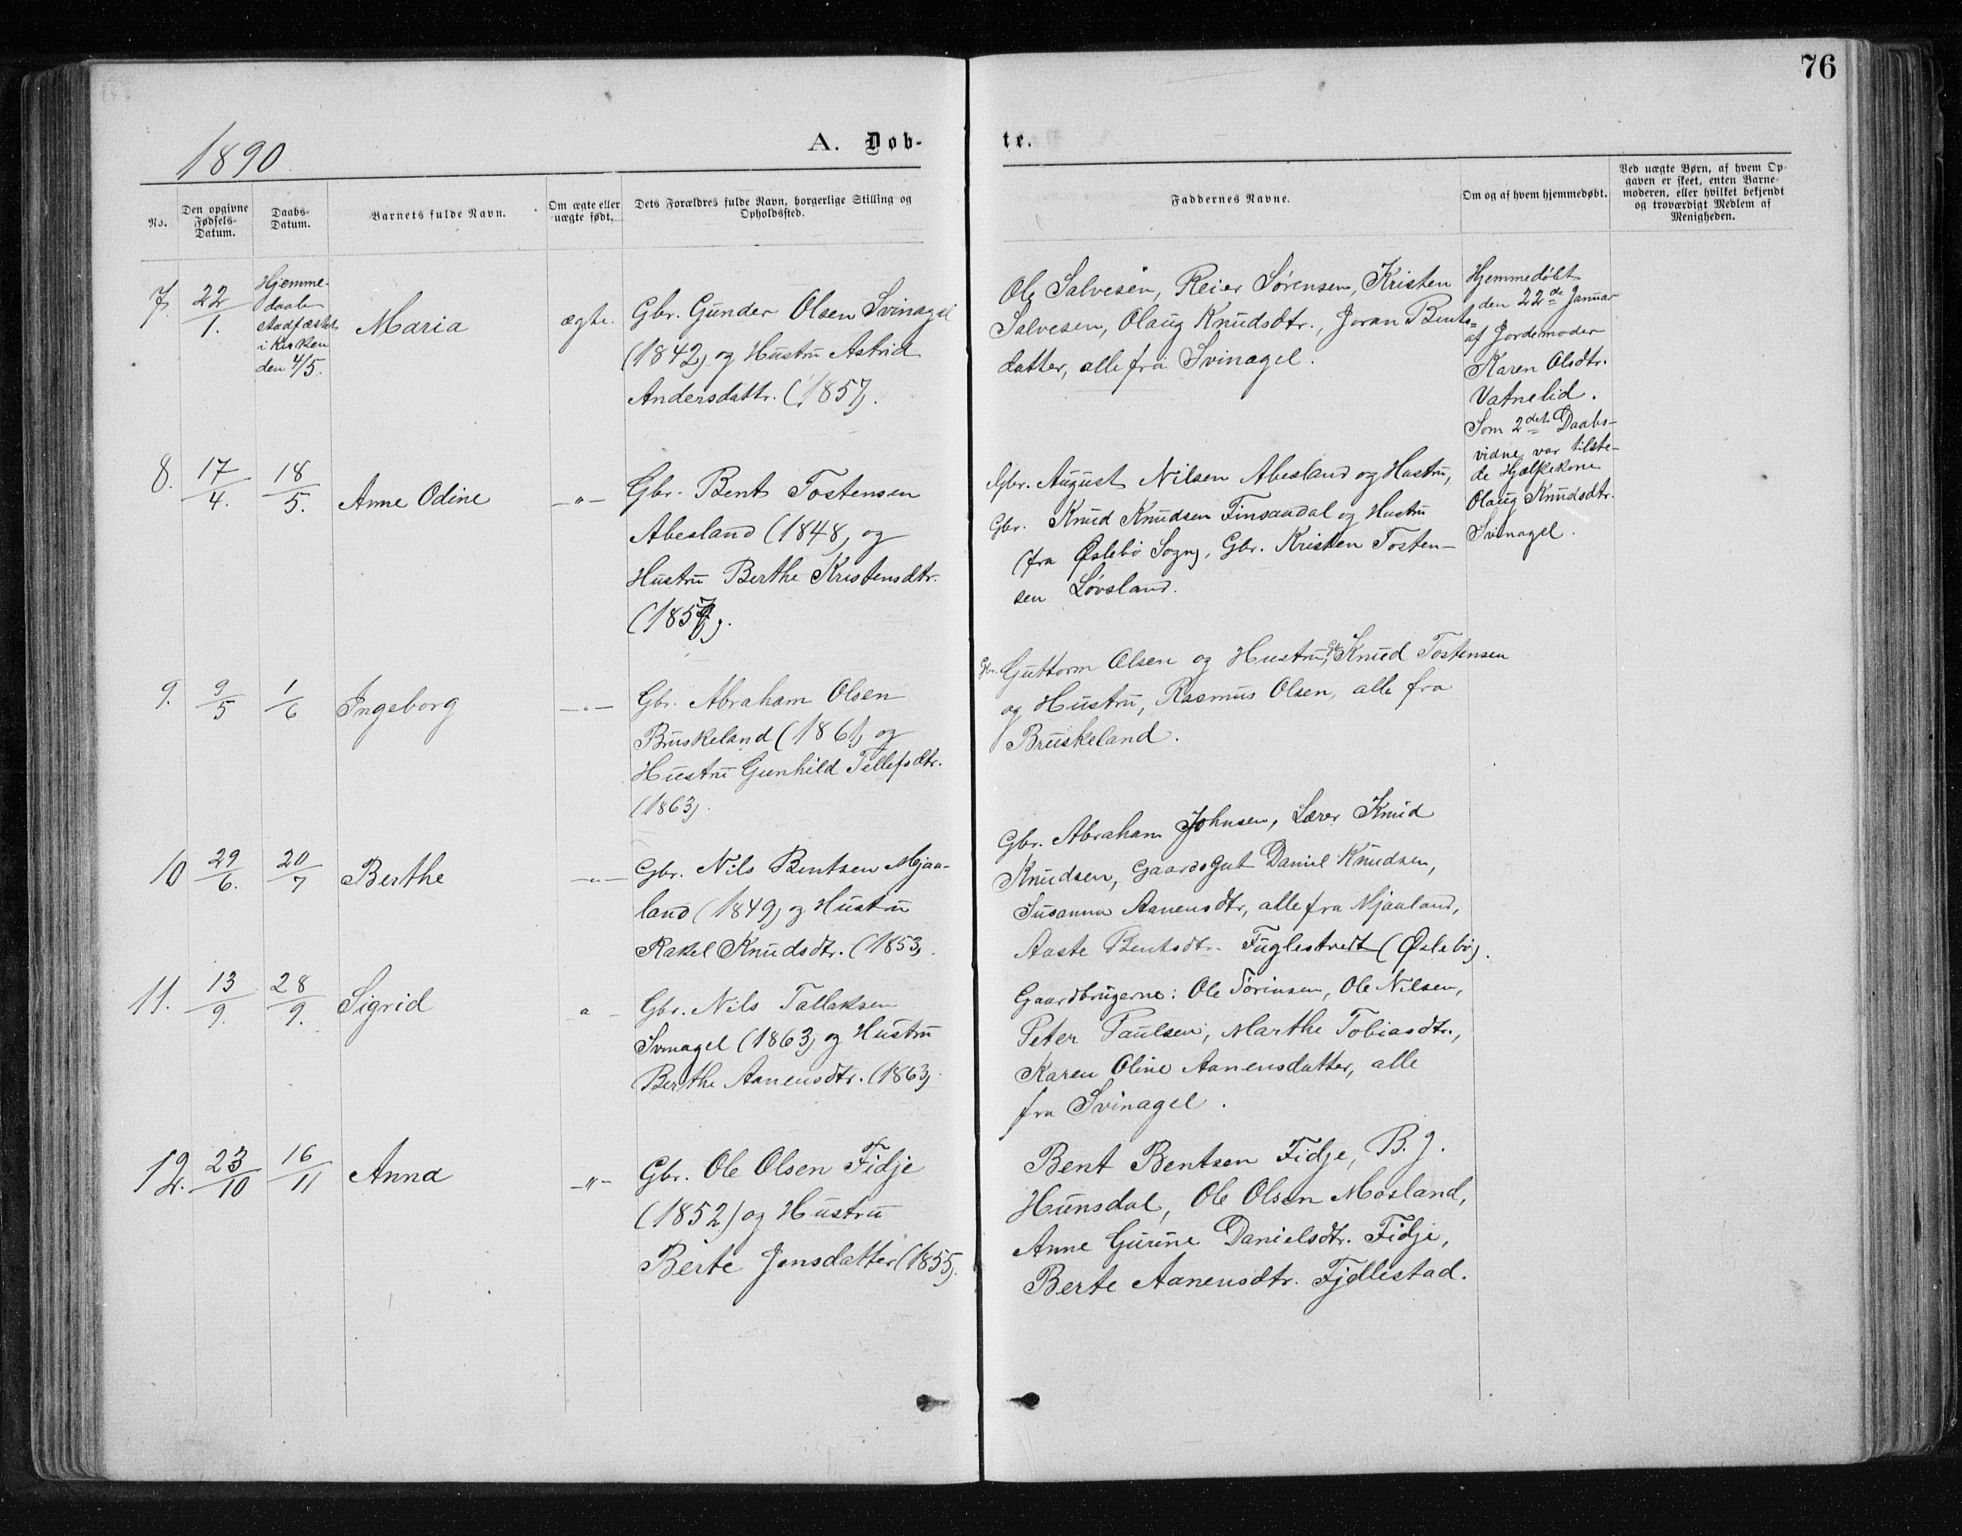 76
1890.
A. Døb-
te.
No.
Den opgivne
Fødsels-
Datum.
Daabs-
Datum.
Barnets fulde Navn.
Om ægte eller
uægte født.
Dets Forældres fulde Navn, borgerlige Stilling og
Opholdssted.
Faddernes Navne.
Om og af hvem hjemmedøbt.
Ved uægte Børn, af hvem Op-
gaven er skeet, enten Barne-
moderen, eller hvilket bekjendt
og troværdigt Medlem af
Menigheden.
7. 22/1.
Hjemme-
daab
stadfæstet
i Kirken
den 4/5.
Maria
ægte.
Gbr. Gunder Olsen Svinagel
(1842) og Hustru Astrid
Andersdattr. (1857).
Ole Salvesen, Reier Sørensen, Kristen
Salvesen, Olaug Knudsdtr., Joran Bents-
datter, alle fra Svinagel.
Hjemmedøbt
den 22de Januar
af Jordemoder
Karen Olsdtr.
Vatnelid.
Som 2det Daabs-
vidne var tilste-
de Hjælpekone
Olaug Knudsdtr.
Svinagel.
8. 17/4. 18/5. Anne Odine -"-
Gbr. Bent Tostensen
Abesland (1848) og
Hustru Berthe Kristensdtr.
Gbr. August Nilsen Abesland og Hustru,
Gbr. Knud Knudsen Finsaadal og Hustru
(fra Øslebø Sogn), Gbr. Kristen Tosten-
sen Løvsland.
9. 9/5 1/6 Ingeborg -"-
Gbr. Abraham Olsen
Bruskeland (1861) og
Hustru Gunhild Tellefsdtr.
(1863).
Gbr. Guttorm Olsen og Hustru, Gbr. Knud Tostensen
og Hustru, Rasmus Olsen, alle fra
Bruskeland.
10 29/6. 20/7 Berthe -"-
Gbr. Nils Bentsen Mjaa-
land (1849) og Hustru
Rakel Knudsdtr. (1853).
Gbr. Abraham Johnsen, Lærer Knud
Knudsen, Gaardsgut Daniel Knudsen,
Susanna Aanensdtr, alle fra Mjaaland,
Aaste Bentsdtr. Fuglestvedt (Øslebø).
11. 13/9. 28/9. Sigrid -"-
Gbr. Nils Tallaksen
Svinagel (1863) og Hustru
Berthe Aanensdtr. (1863).
Gaardbrugerne: Ole Sørensen, Ole Nilsen,
Peter Paulsen, Marthe Tobiasdtr.,
Karen Oline Aanensdatter, alle
fra Svinagel.
12. 23/10 16/11 Anna -"-
Gbr. Ole Olsen Fidje
(1852) og Hustru
Berte Jensdatter (1855).
Bent Bentsen Fidje, B. J.
Hunsdal, Ole Olsen Mosland,
Anne Gurine Danielsdtr. Fidje,
Berte Aanensdtr. Fjellestad.